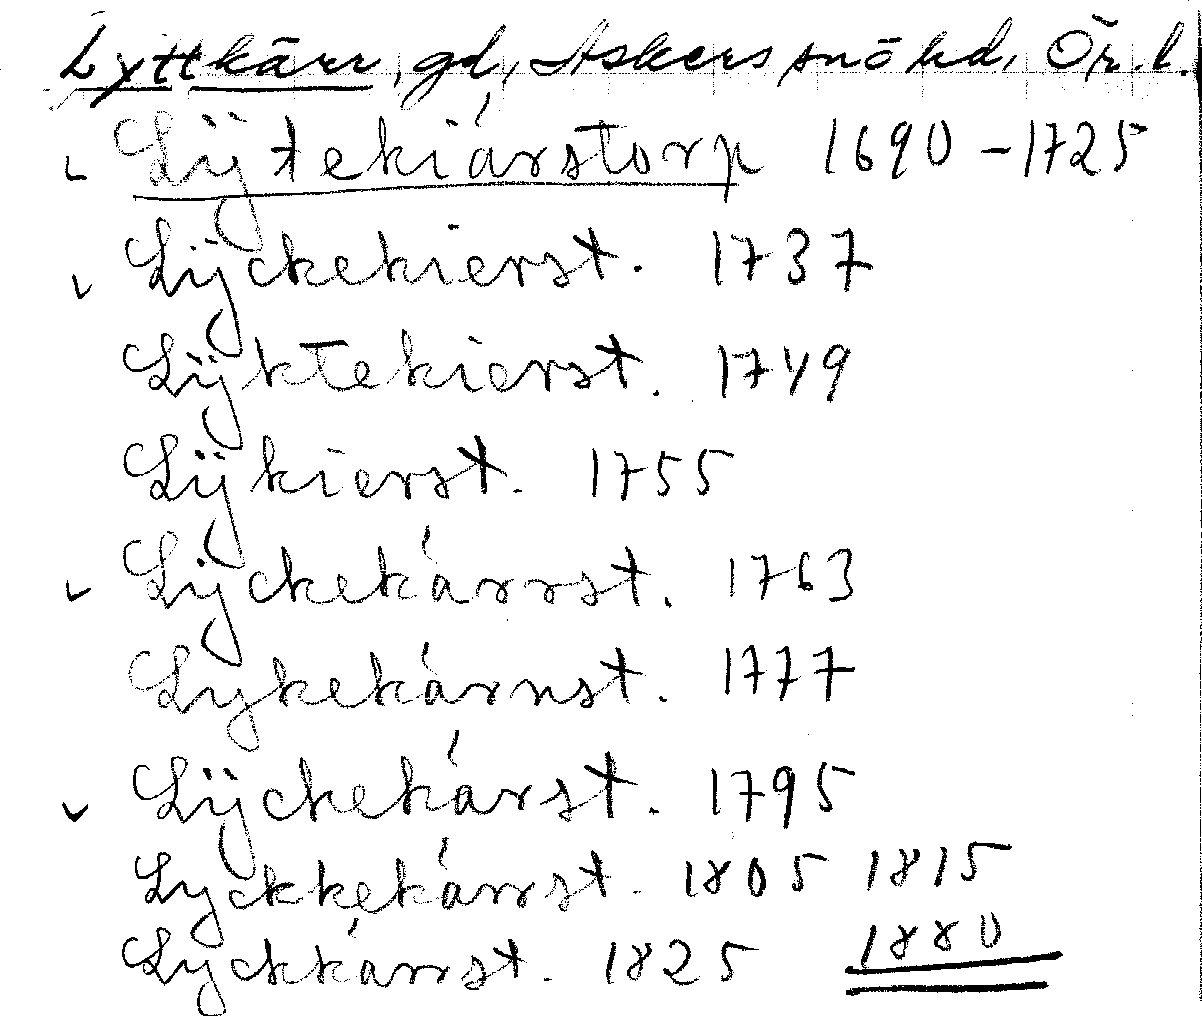 Lyttkärr, gd, Askers snö hd, Ör. l.
Lÿtekiárstorp 1690 - 1725
Lÿckekierst. 1737
Lÿktekierst. 1749
Lÿkierst. 1755
Lÿckekárrst. 1763
Lykekárnst. 1777
Lÿckekárst. 1795
Lyckkekárrst. 1805 1815
Lyckkárrst. 1825 1880